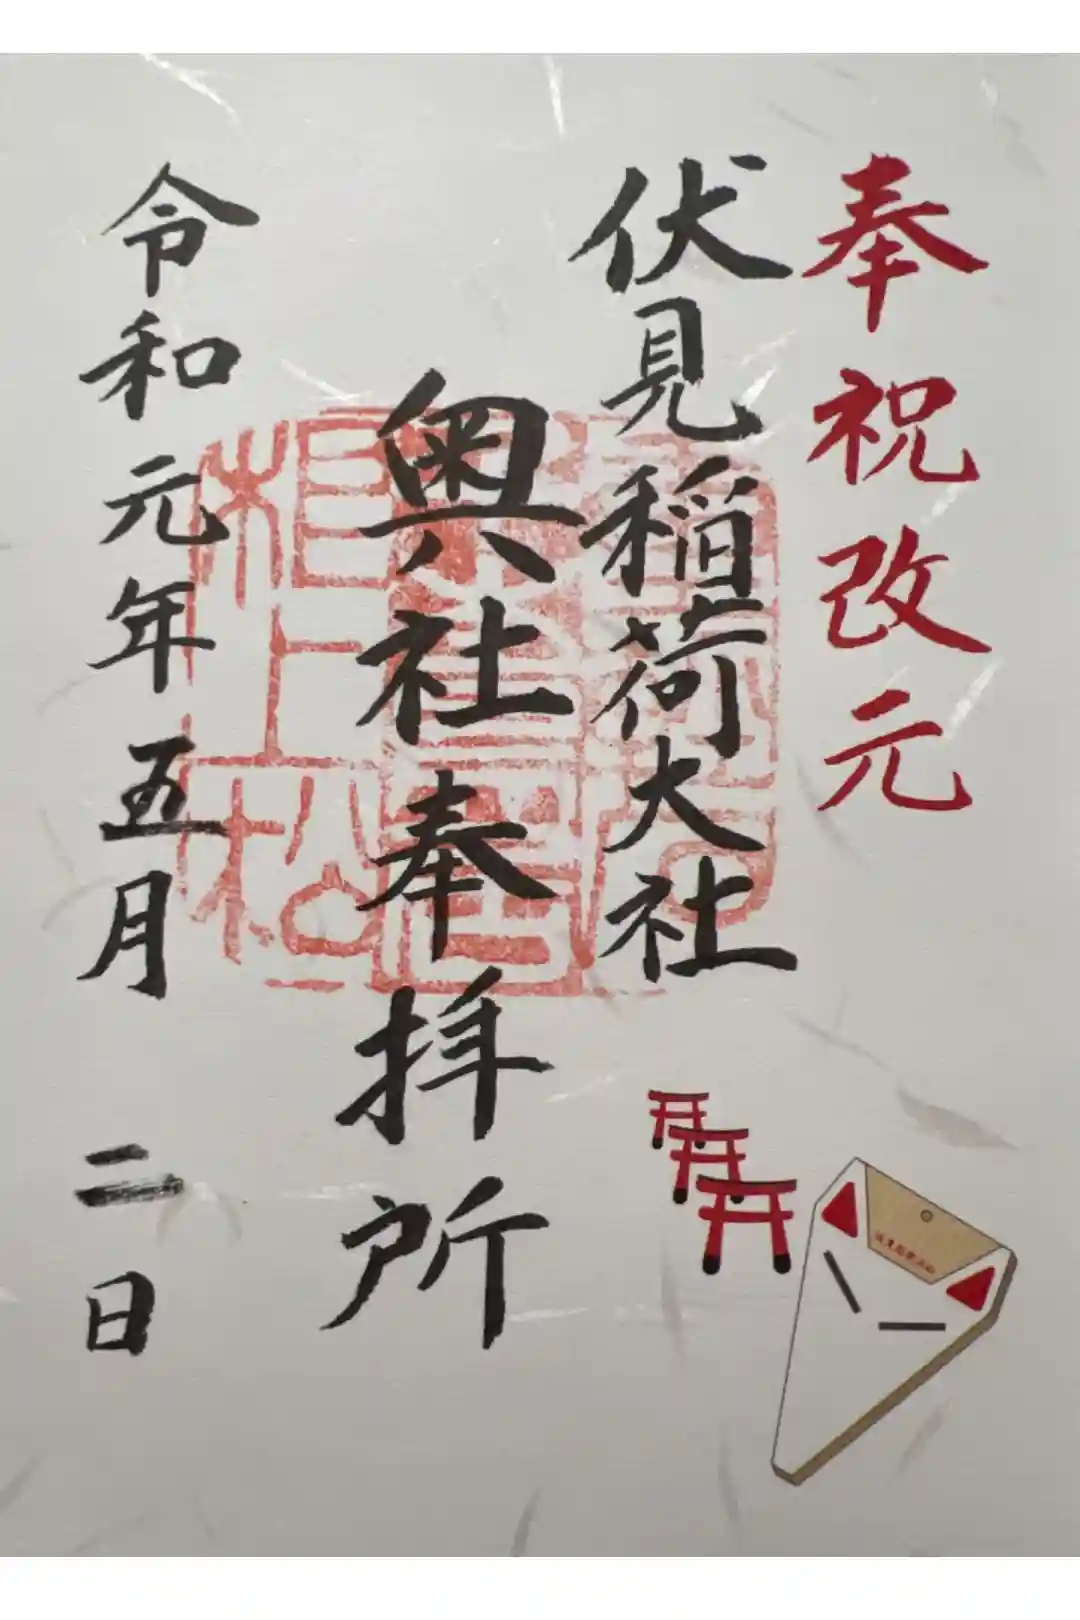 奉祝改元
伏見稲荷大社
奥社奉拝所
令和元年五月二日